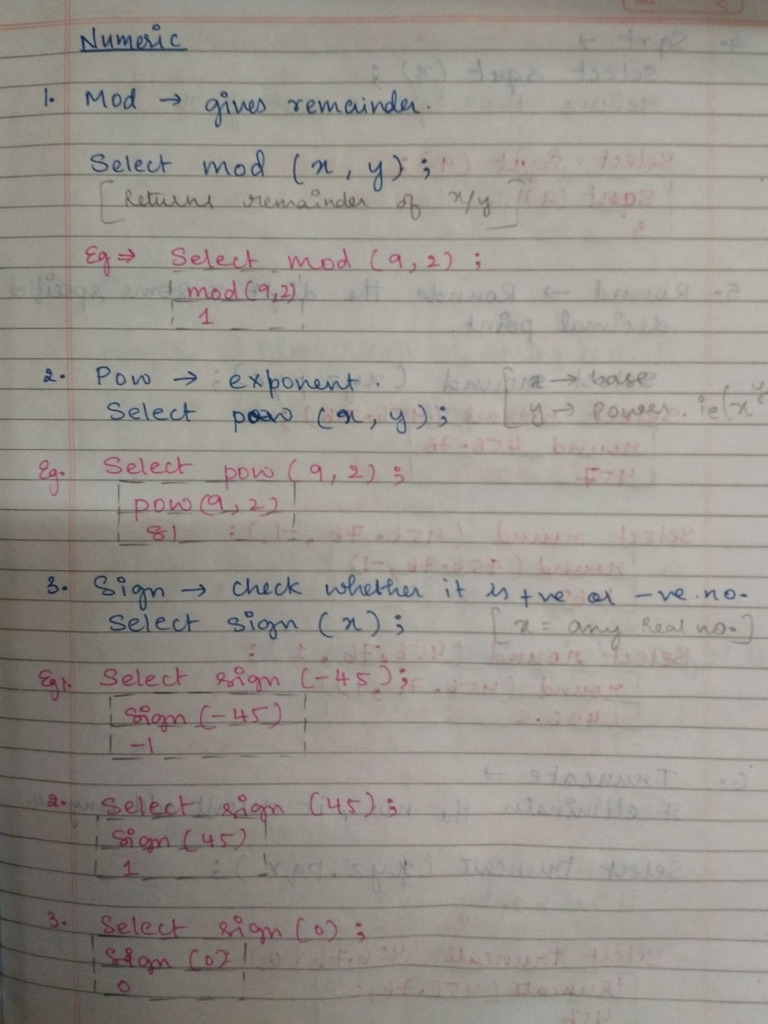 Numeric
1. Mod → gives remainder.
Select mod (x, y);
[Returns remainder of x/y]
Eg ⇒ Select mod (9,2);
mod(9,2)
1
2. Pow → exponent. [x → base
Select pow (x, y); y → Power. ie(x^y
Eg. Select pow (9,2);
pow(9,2)
81
3. Sign → check whether it is +ve or -ve no.
Select sign (x); [x = any Real no.]
Eg1. Select sign (-45);
sign (-45)
-1
2. Select sign (45);
sign (45)
1
3. Select sign (0);
sign (0)
0